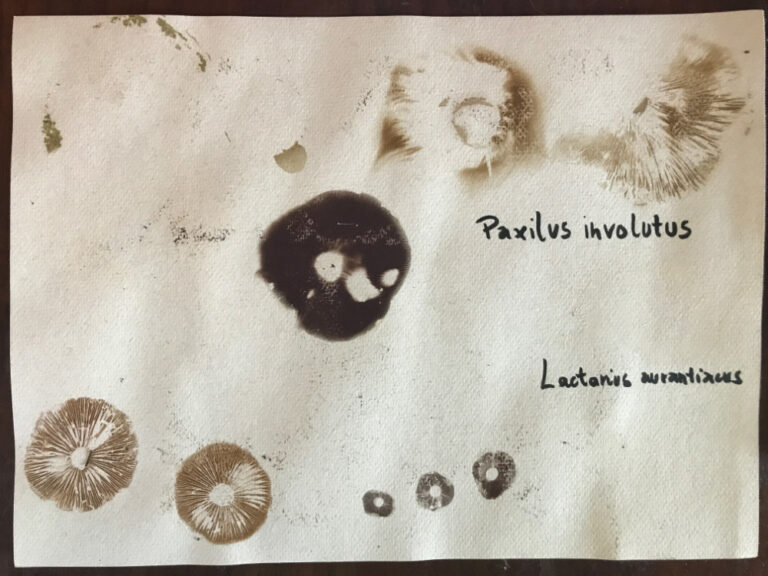 Paxilus involutus
Lactarius aurantiacus